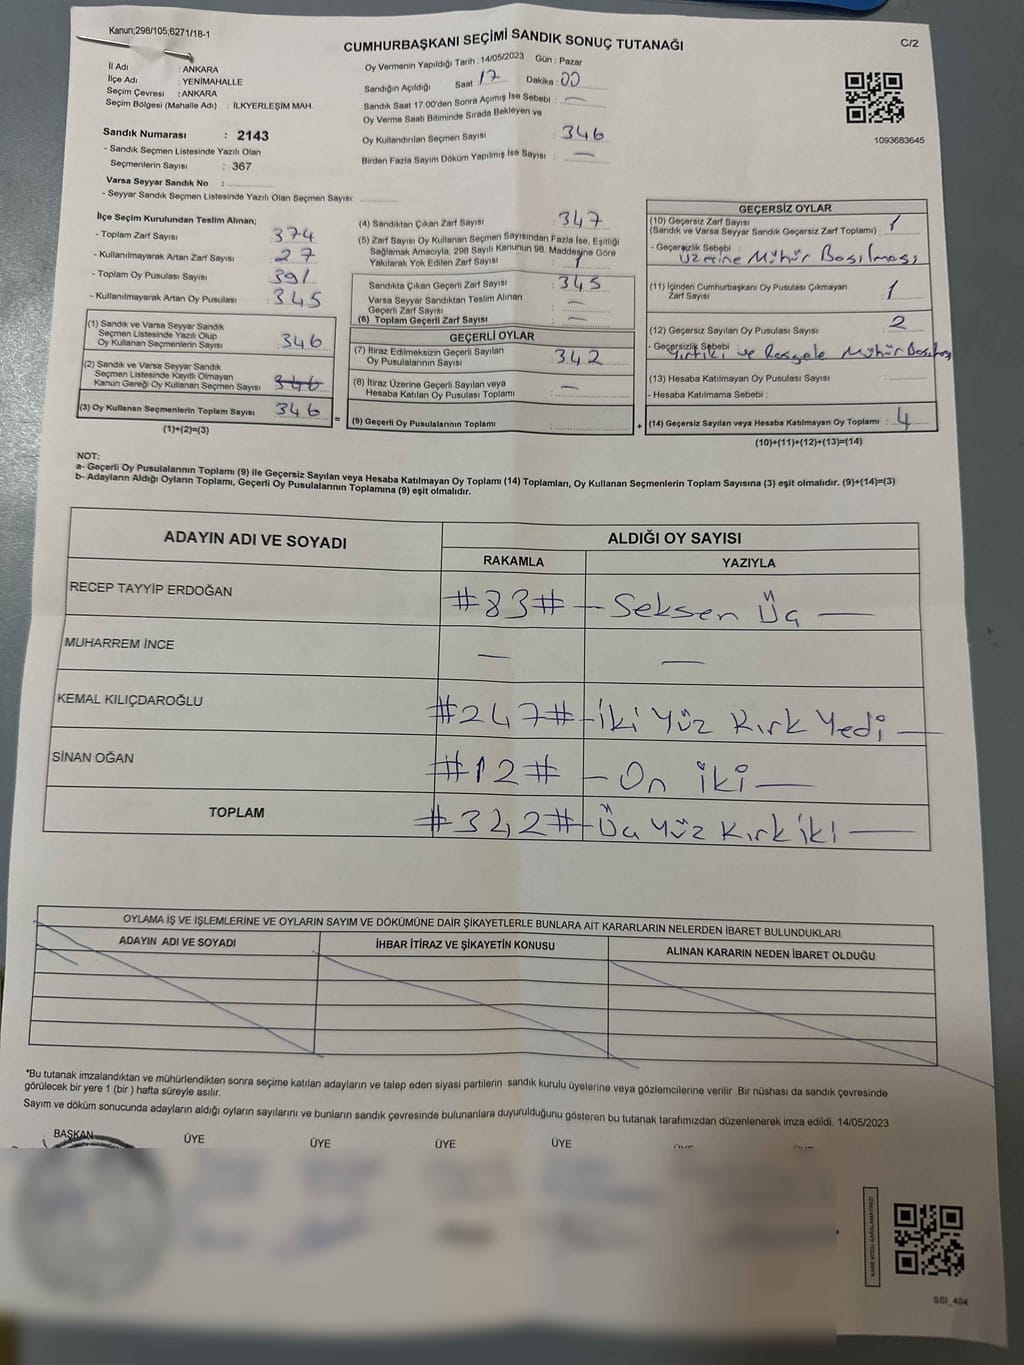 Kanun;298/105;6271/18-1
CUMHURBAŞKANI SEÇİMİ SANDIK SONUÇ TUTANAĞI
C/2
İl Adı : ANKARA
İlçe Adı : YENİMAHALLE
Seçim Çevresi : ANKARA
Seçim Bölgesi (Mahalle Adı) : İLKYERLEŞİM MAH.
Sandık Numarası : 2143
- Sandık Seçmen Listesinde Yazılı Olan
Seçmenlerin Sayısı : 367
Varsa Seyyar Sandık No :
- Seyyar Sandık Seçmen Listesinde Yazılı Olan Seçmen Sayısı:
Oy Vermenin Yapıldığı Tarih : 14/05/2023 Gün : Pazar
Sandığın Açıldığı Saat 17 Dakika : 00
Sandık Saat 17:00'den Sonra Açımış İse Sebebi : —
Oy Verme Saati Bitiminde Sırada Bekleyen ve
Oy Kullandırılan Seçmen Sayısı : 346
Birden Fazla Sayım Döküm Yapılmış İse Sayısı : —
1093683645
İlçe Seçim Kurulundan Teslim Alınan;
- Toplam Zarf Sayısı : 374
- Kullanılmayarak Artan Zarf Sayısı : 27
- Toplam Oy Pusulası Sayısı : 391
- Kullanılmayarak Artan Oy Pusulası : 345
(1) Sandık ve Varsa Seyyar Sandık
Seçmen Listesinde Yazılı Olup
Oy Kullanan Seçmenlerin Sayısı : 346
(2) Sandık ve Varsa Seyyar Sandık
Seçmen Listesinde Kayıtlı Olmayan
Kanun Gereği Oy Kullanan Seçmen Sayısı : 346
(3) Oy Kullanan Seçmenlerin Toplam Sayısı : 346
(1)+(2)=(3)
(4) Sandıktan Çıkan Zarf Sayısı : 347
(5) Zarf Sayısı Oy Kullanan Seçmen Sayısından Fazla İse, Eşitliği
Sağlamak Amacıyla, 298 Sayılı Kanunun 98. Maddesine Göre
Yakılarak Yok Edilen Zarf Sayısı : 1
Sandıkta Çıkan Geçerli Zarf Sayısı : 345
Varsa Seyyar Sandıktan Teslim Alınan
Geçerli Zarf Sayısı : —
(6) Toplam Geçerli Zarf Sayısı : —
GEÇERLİ OYLAR
(7) İtiraz Edilmeksizin Geçerli Sayılan
Oy Pusulalarının Sayısı : 342
(8) İtiraz Üzerine Geçerli Sayılan veya
Hesaba Katılan Oy Pusulası Toplamı : —
(9) Geçerli Oy Pusulalarının Toplamı :
GEÇERSİZ OYLAR
(10) Geçersiz Zarf Sayısı
(Sandık ve Varsa Seyyar Sandık Geçersiz Zarf Toplamı) : 1
- Geçersizlik Sebebi : Üzerine Mühür Basılması
(11) İçinden Cumhurbaşkanı Oy Pusulası Çıkmayan
Zarf Sayısı : 1
(12) Geçersiz Sayılan Oy Pusulası Sayısı : 2
- Geçersizlik Sebebi : Yırtık ve Rasgele Mühür
(13) Hesaba Katılmayan Oy Pusulası Sayısı :
- Hesaba Katılmama Sebebi :
(14) Geçersiz Sayılan veya Hesaba Katılmayan Oy Toplamı : 4
(10)+(11)+(12)+(13)=(14)
NOT:
a- Geçerli Oy Pusulalarının Toplamı (9) ile Geçersiz Sayılan veya Hesaba Katılmayan Oy Toplamı (14) Toplamları, Oy Kullanan Seçmenlerin Toplam Sayısına (3) eşit olmalıdır. (9)+(14)=(3)
b- Adayların Aldığı Oyların Toplamı, Geçerli Oy Pusulalarının Toplamına (9) eşit olmalıdır.
ADAYIN ADI VE SOYADI ALDIĞI OY SAYISI
RAKAMLA YAZIYLA
RECEP TAYYİP ERDOĞAN #83# – Seksen Üç —
MUHARREM İNCE — —
KEMAL KILIÇDAROĞLU #247# – İki Yüz Kırk Yedi —
SİNAN OĞAN #12# – On iki —
TOPLAM #342# – Üç Yüz Kırk iki —
OYLAMA İŞ VE İŞLEMLERİNE VE OYLARIN SAYIM VE DÖKÜMÜNE DAİR ŞİKAYETLERLE BUNLARA AİT KARARLARIN NELERDEN İBARET BULUNDUKLARI
ADAYIN ADI VE SOYADI İHBAR İTİRAZ VE ŞİKAYETİN KONUSU ALINAN KARARIN NEDEN İBARET OLDUĞU
*Bu tutanak imzalandıktan ve mühürlendikten sonra seçime katılan adayların ve talep eden siyasi partilerin sandık kurulu üyelerine veya gözlemcilerine verilir .Bir nüshası da sandık çevresinde
görülecek bir yere 1 (bir ) hafta süreyle asılır.
Sayım ve döküm sonucunda adayların aldığı oyların sayılarını ve bunların sandık çevresinde bulunanlara duyurulduğunu gösteren bu tutanak tarafımızdan düzenlenerek imza edildi. 14/05/2023
BAŞKAN ÜYE ÜYE ÜYE ÜYE
KARE KODU KARALAMAYINIZ!
SSI_404